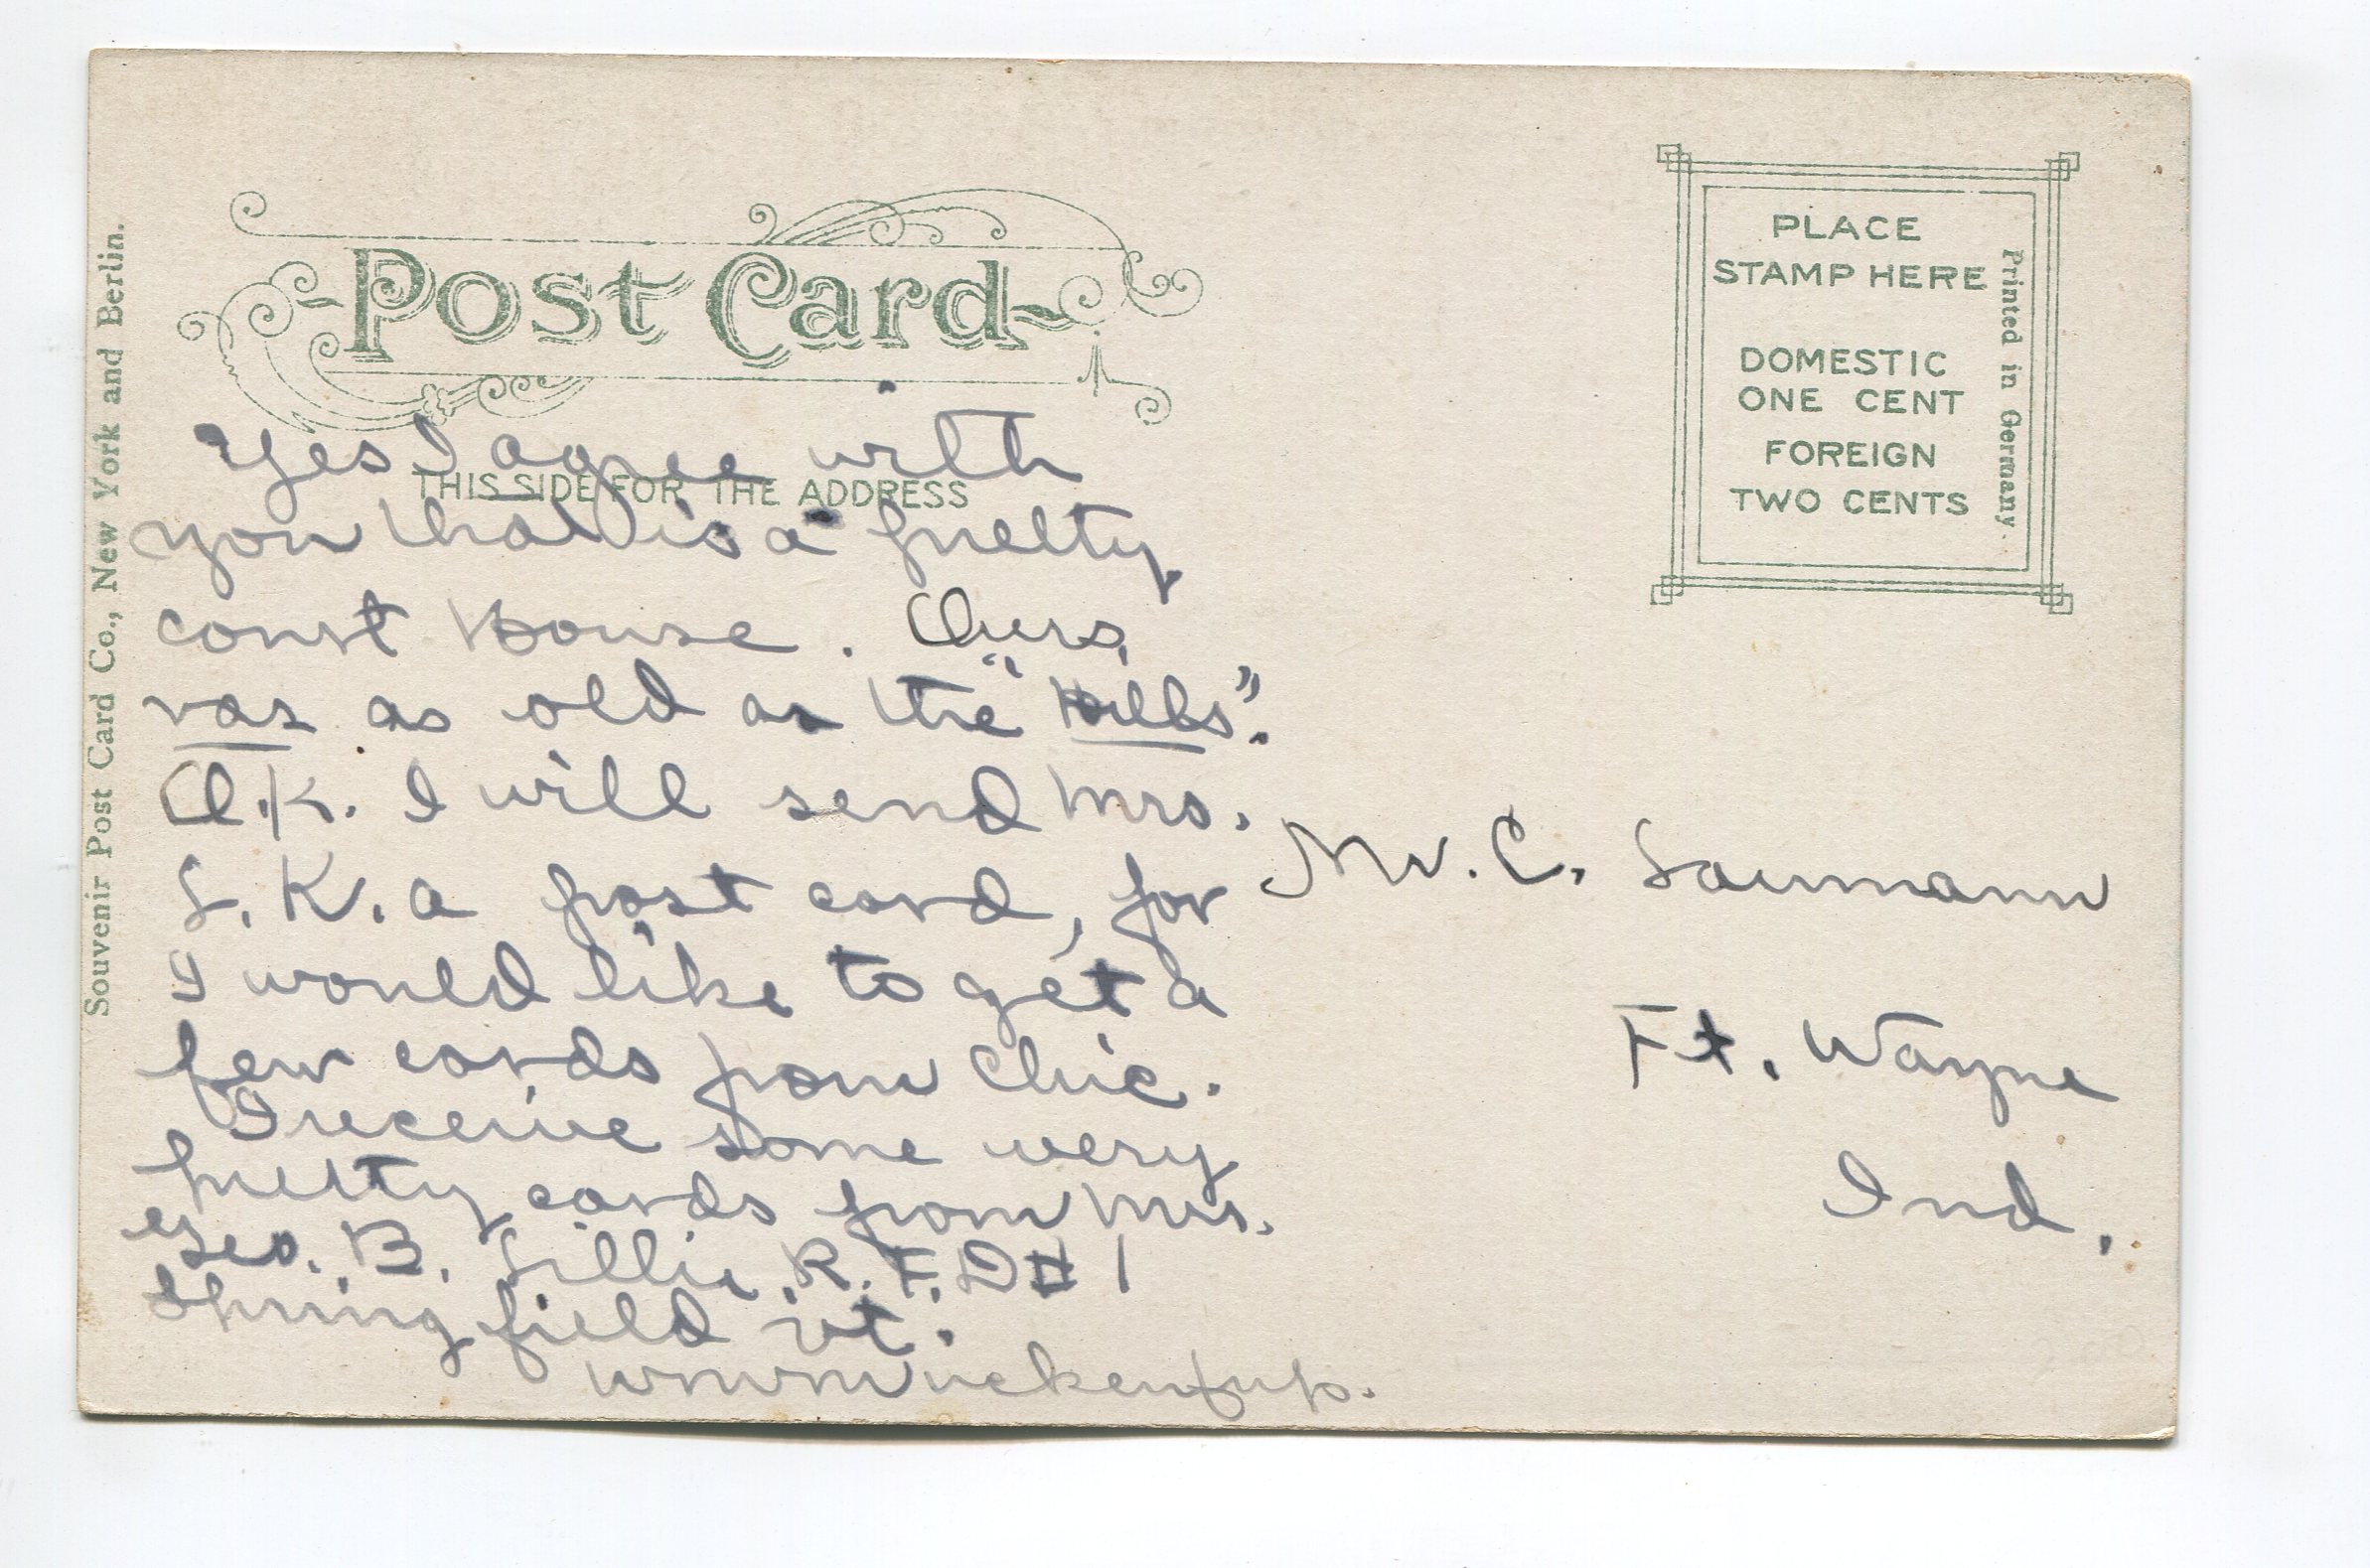 Souvenir Post Card Co., New York and Berlin.
Post Card
THIS SIDE FOR THE ADDRESS
PLACE
STAMP HERE
DOMESTIC
ONE CENT
FOREIGN
TWO CENTS
Printed in Germany.
Yes I agree with
you that is a pretty
court house. Ours
was as old as the "Hills".
O.K. I will send Mrs.
S.K. a post card, for
I would like to get a
few cards from Chic.
I receive some very
pretty cards from Mrs.
Geo. B. Lillie, R.F.D # 1
Springfield Vt.
Mr. C. Saumann
Ft. Wayne
Ind.